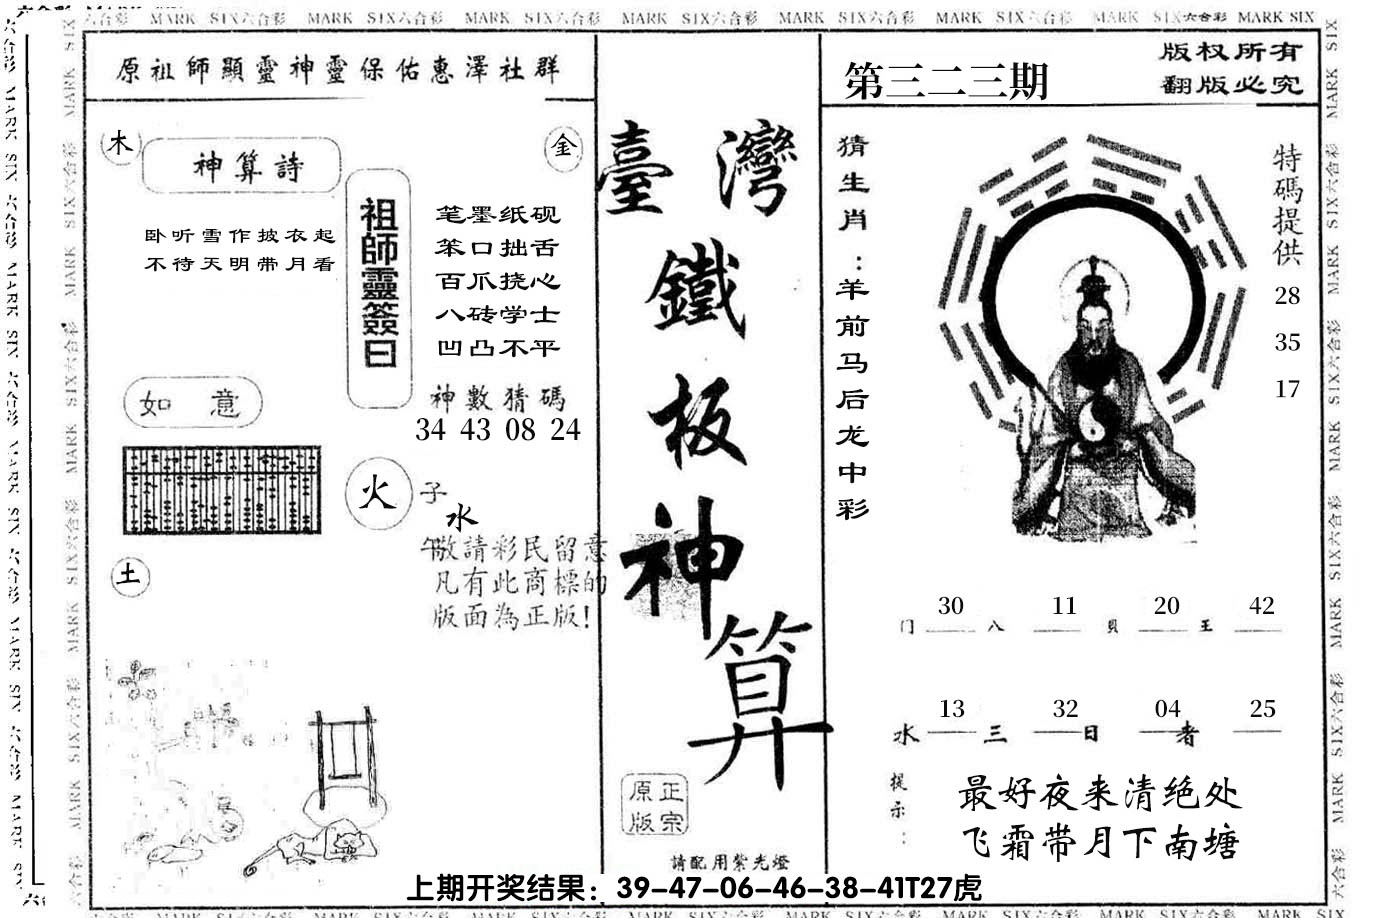 MARK SIX六合彩 MARK SIX六合彩 MARK SIX六合彩 MARK SIX六合彩 MARK SIX六合彩 MARK SIX六合彩 MARK SIX六合彩 MARK SIX
原祖師顯靈神靈保佑惠澤社群
木
神算詩
金
卧听雪作披衣起
不待天明带月看
祖師靈簽曰
笔墨纸砚
笨口拙舌
百爪挠心
八砖学士
凹凸不平
神數猜碼
34 43 08 24
如意
火
子
水
午
敬請彩民留意
凡有此商標的
版面為正版!
土
臺灣
鐵
板
神
算
原正
版宗
請配用紫光燈
第三二三期
版权所有
翻版必究
猜生肖：羊前马后龙中彩
特碼提供
28
35
17
30 11 20 42
门 八 貝 王
13 32 04 25
水 三 日 者
提示：
最好夜来清绝处
飞霜带月下南塘
上期开奖结果：39-47-06-46-38-41T27虎